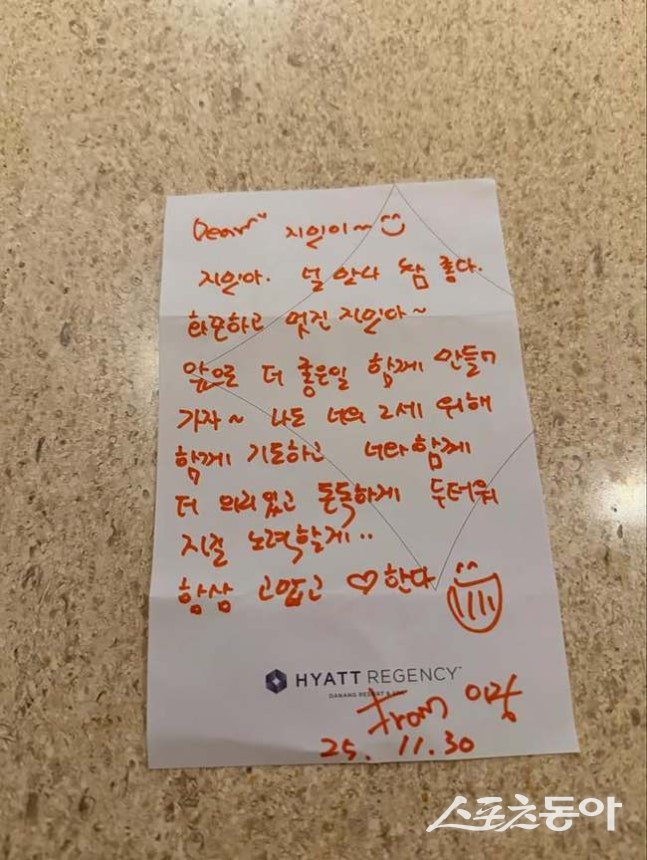 Dear~ 지인이~
지인아. 널 만나 참 좋다.
하고 멋진 지인아~
앞으로 더 좋은일 함께 만들어
가자~ 나는 너의 2세 위해
함께 기도하고 너와 함께
더 의리있고 돈독하게 두터워
지길 노력할게..
항상 고맙고 ♡한다
HYATT REGENCY™
DANANG RESORT & SPA
From 이장
25. 11. 30
스포츠동아